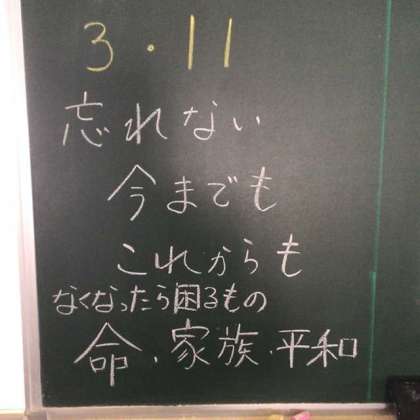 3・11
忘れない
今までも
これからも
なくなったら困るもの
命・家族・平和